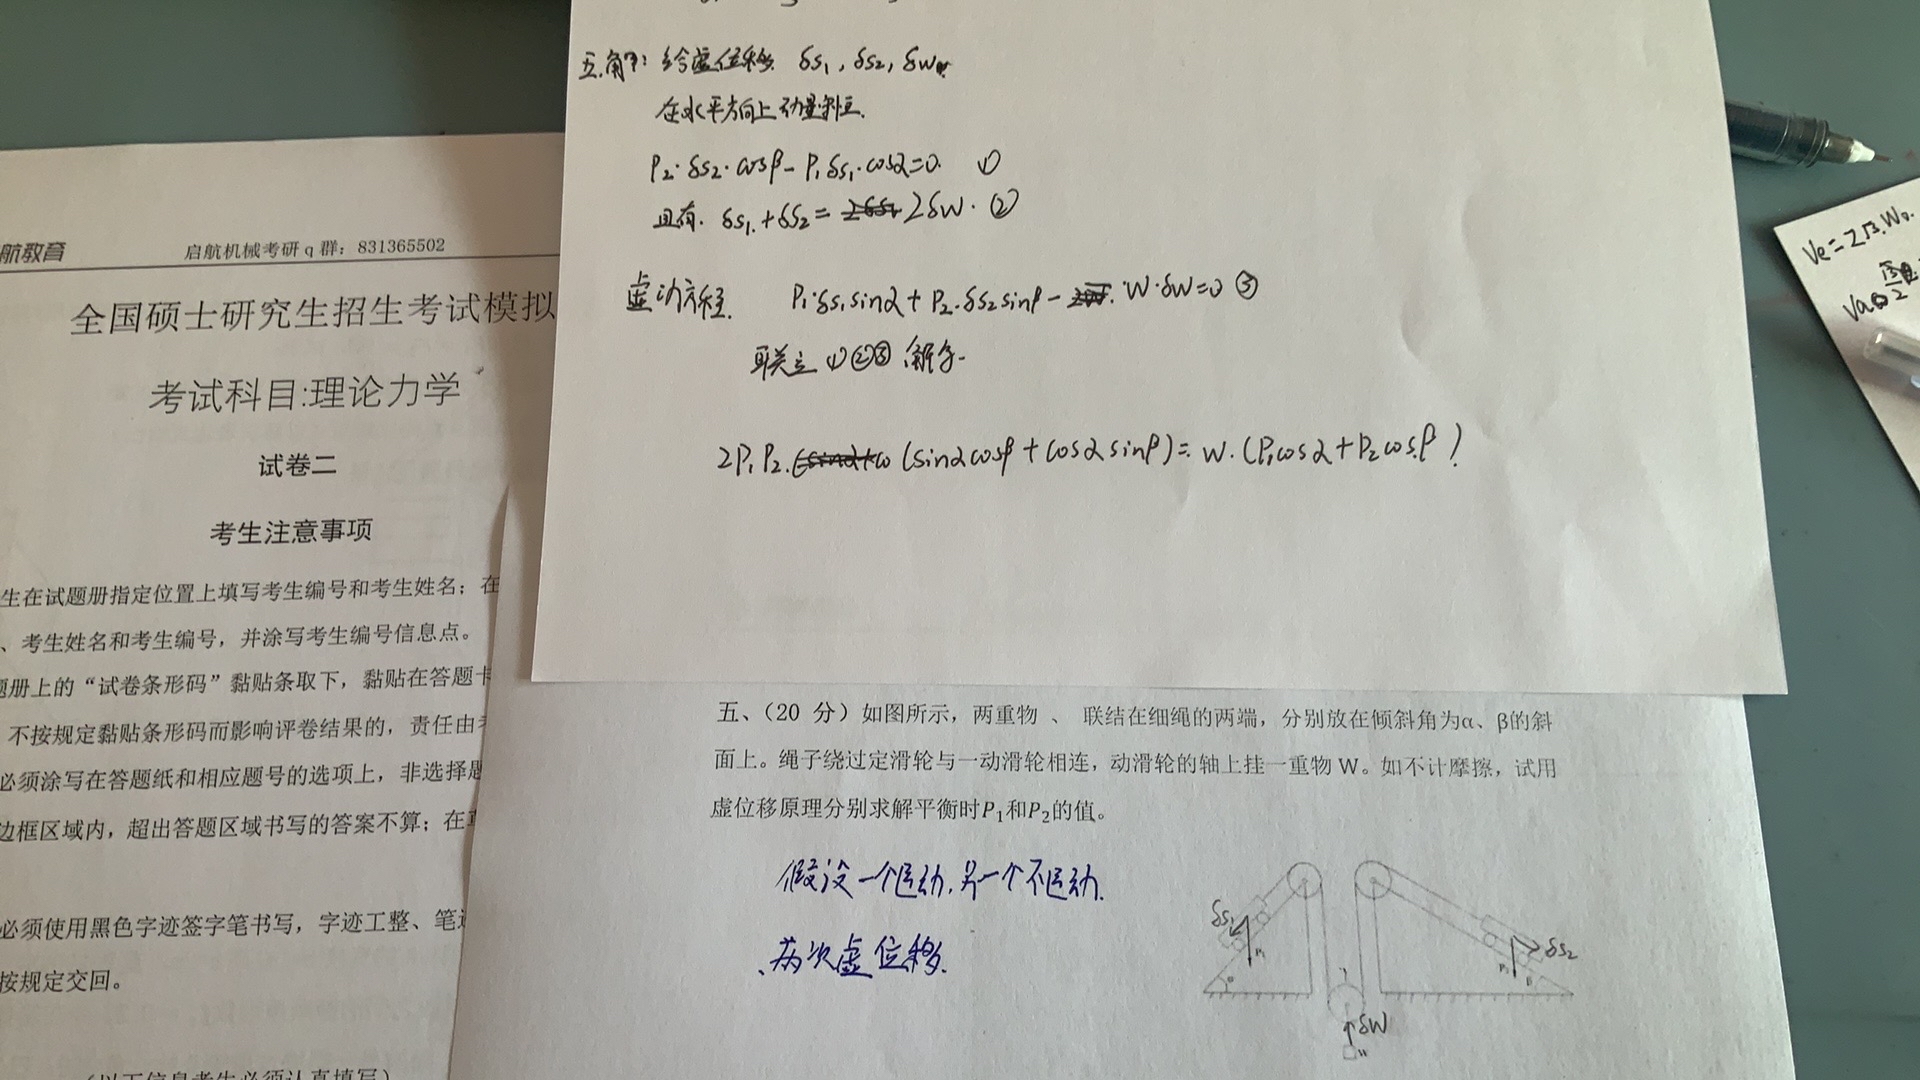 五.解: 给虚位移 δs₁, δs₂, δw.
在水平方向上动量守恒.
P₂·δs₂·cosβ - P₁δs₁·cosα=0. ①
且有. δs₁+δs₂= 2δW. ②
虚动方程. P₁·δs₁sinα + P₂·δs₂sinβ - W·δW=0 ③
联立 ①②③ 解得.
2P₁P₂. (sinαcosβ + cosαsinβ)= W·(P₁cosα+P₂cosβ)
Ve=2√3.W₀.
Va
航教育
启航机械考研 q 群：831365502
全国硕士研究生招生考试模拟
考试科目:理论力学
试卷二
考生注意事项
生在试题册指定位置上填写考生编号和考生姓名；在
、考生姓名和考生编号，并涂写考生编号信息点。
题册上的“试卷条形码”黏贴条取下，黏贴在答题卡
不按规定黏贴条形码而影响评卷结果的，责任由考
必须涂写在答题纸和相应题号的选项上，非选择题
边框区域内，超出答题区域书写的答案不算；在草
必须使用黑色字迹签字笔书写，字迹工整、笔迹
按规定交回。
（以下信息考生必须认真填写）
五、（20 分）如图所示，两重物 、 联结在细绳的两端，分别放在倾斜角为α、β的斜
面上。绳子绕过定滑轮与一动滑轮相连，动滑轮的轴上挂一重物 W。如不计摩擦，试用
虚位移原理分别求解平衡时P₁和P₂的值。
假设一个运动.另一个不运动.
、两次虚位移.
δs₁
P₁
δs₂
β
δW
W